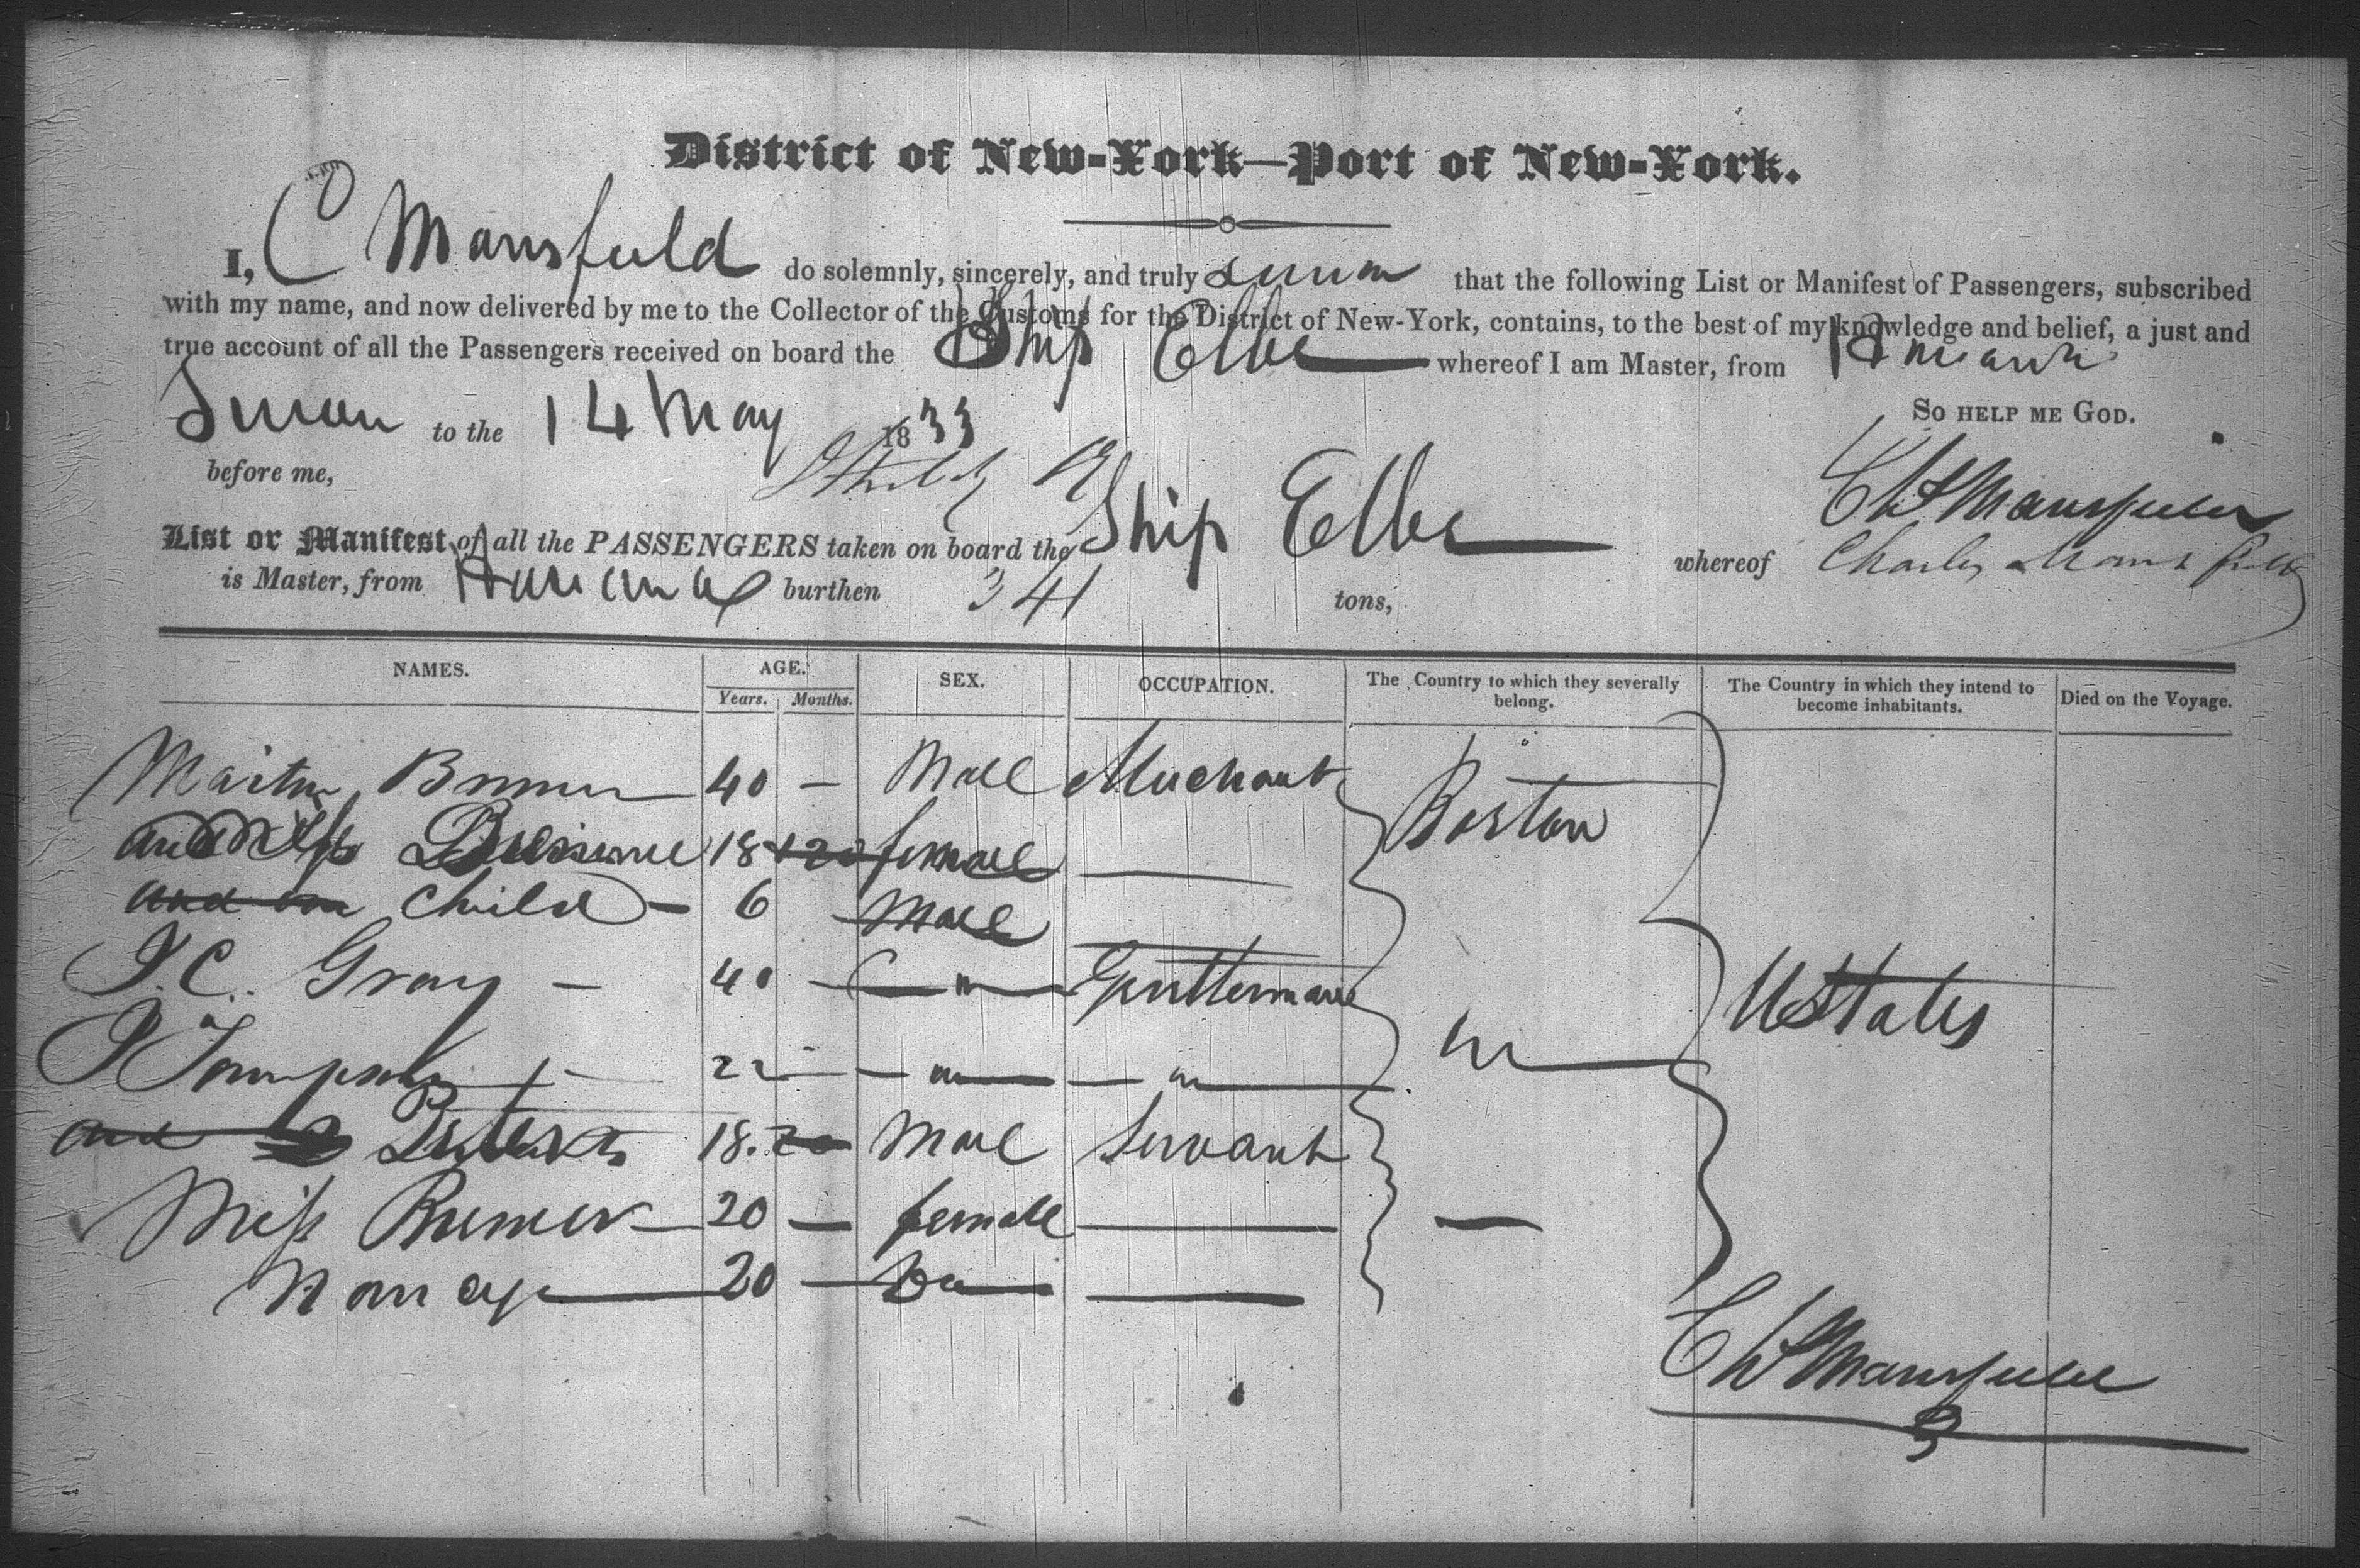 District of New-York—Port of New-York.
I, C Mansfield do solemnly, sincerely, and truly swear that the following List or Manifest of Passengers, subscribed
with my name, and now delivered by me to the Collector of the Customs for the District of New-York, contains, to the best of my knowledge and belief, a just and
true account of all the Passengers received on board the Ship Elbe whereof I am Master, from
to the 14 May 1833 So help me God.
before me,
List or Manifest of all the PASSENGERS taken on board the Ship Elbe whereof Charles Mansfield
is Master, from burthen 341 tons,
NAMES. AGE. SEX. OCCUPATION. The Country to which they severally belong. The Country in which they intend to become inhabitants. Died on the Voyage.
Years. Months.
40 — Male Merchant Boston
18 female
and child — 6 Male
Gray — 40 Gentleman UStates
22
and 18 Male Servant
Miss Bremer 20 — female —
Nancy 20 — Do
Ch Mansfield